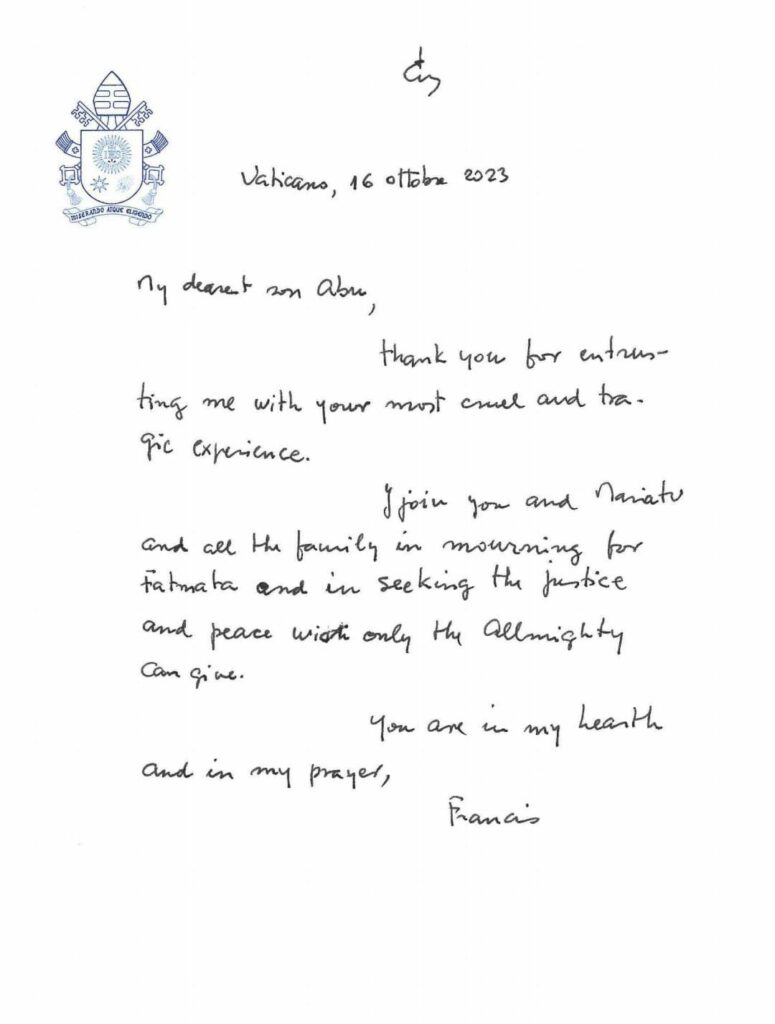 MISERANDO ATQUE ELIGENDO
Vaticano, 16 ottobre 2023
My dearest son Abu,
thank you for entrus-
ting me with your most cruel and tra-
gic experience.
I join you and Mariatu
and all the family in mourning for
Fatmata and in seeking the justice
and peace wich only the Allmighty
can give.
You are in my hearth
and in my prayer,
Francis